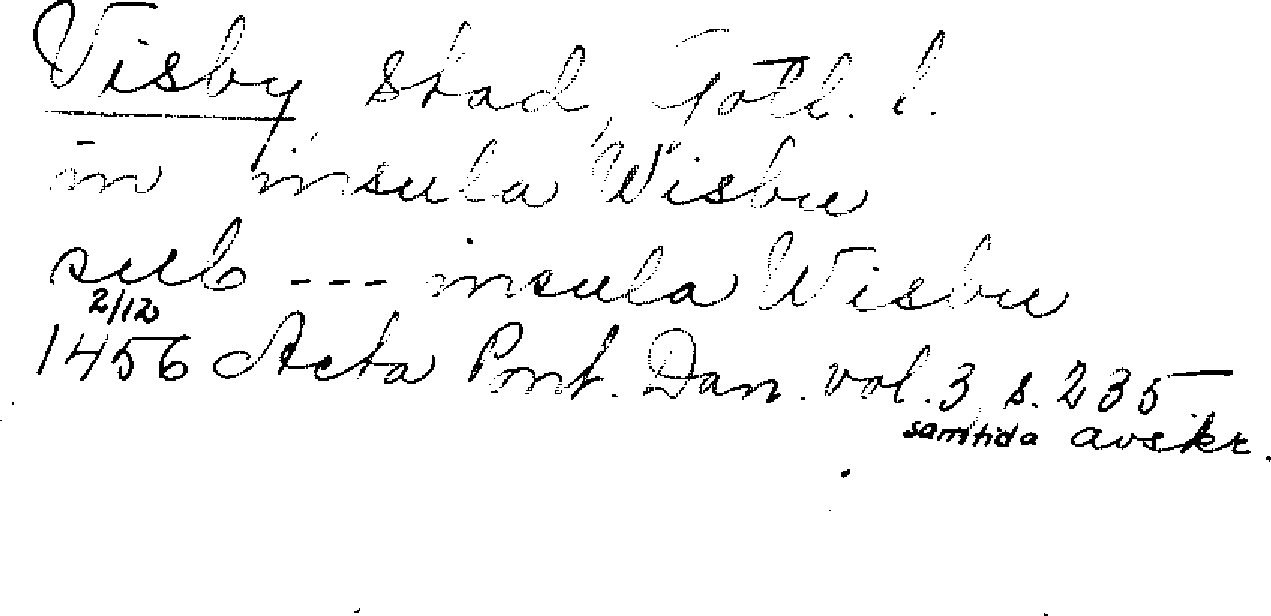 Visby stad, Gotl. l.
in insula Wisbu
sub --- insula Wisbu
2/12
1456 Acta Pont. Dan. vol. 3 s. 235
samtida avskr.